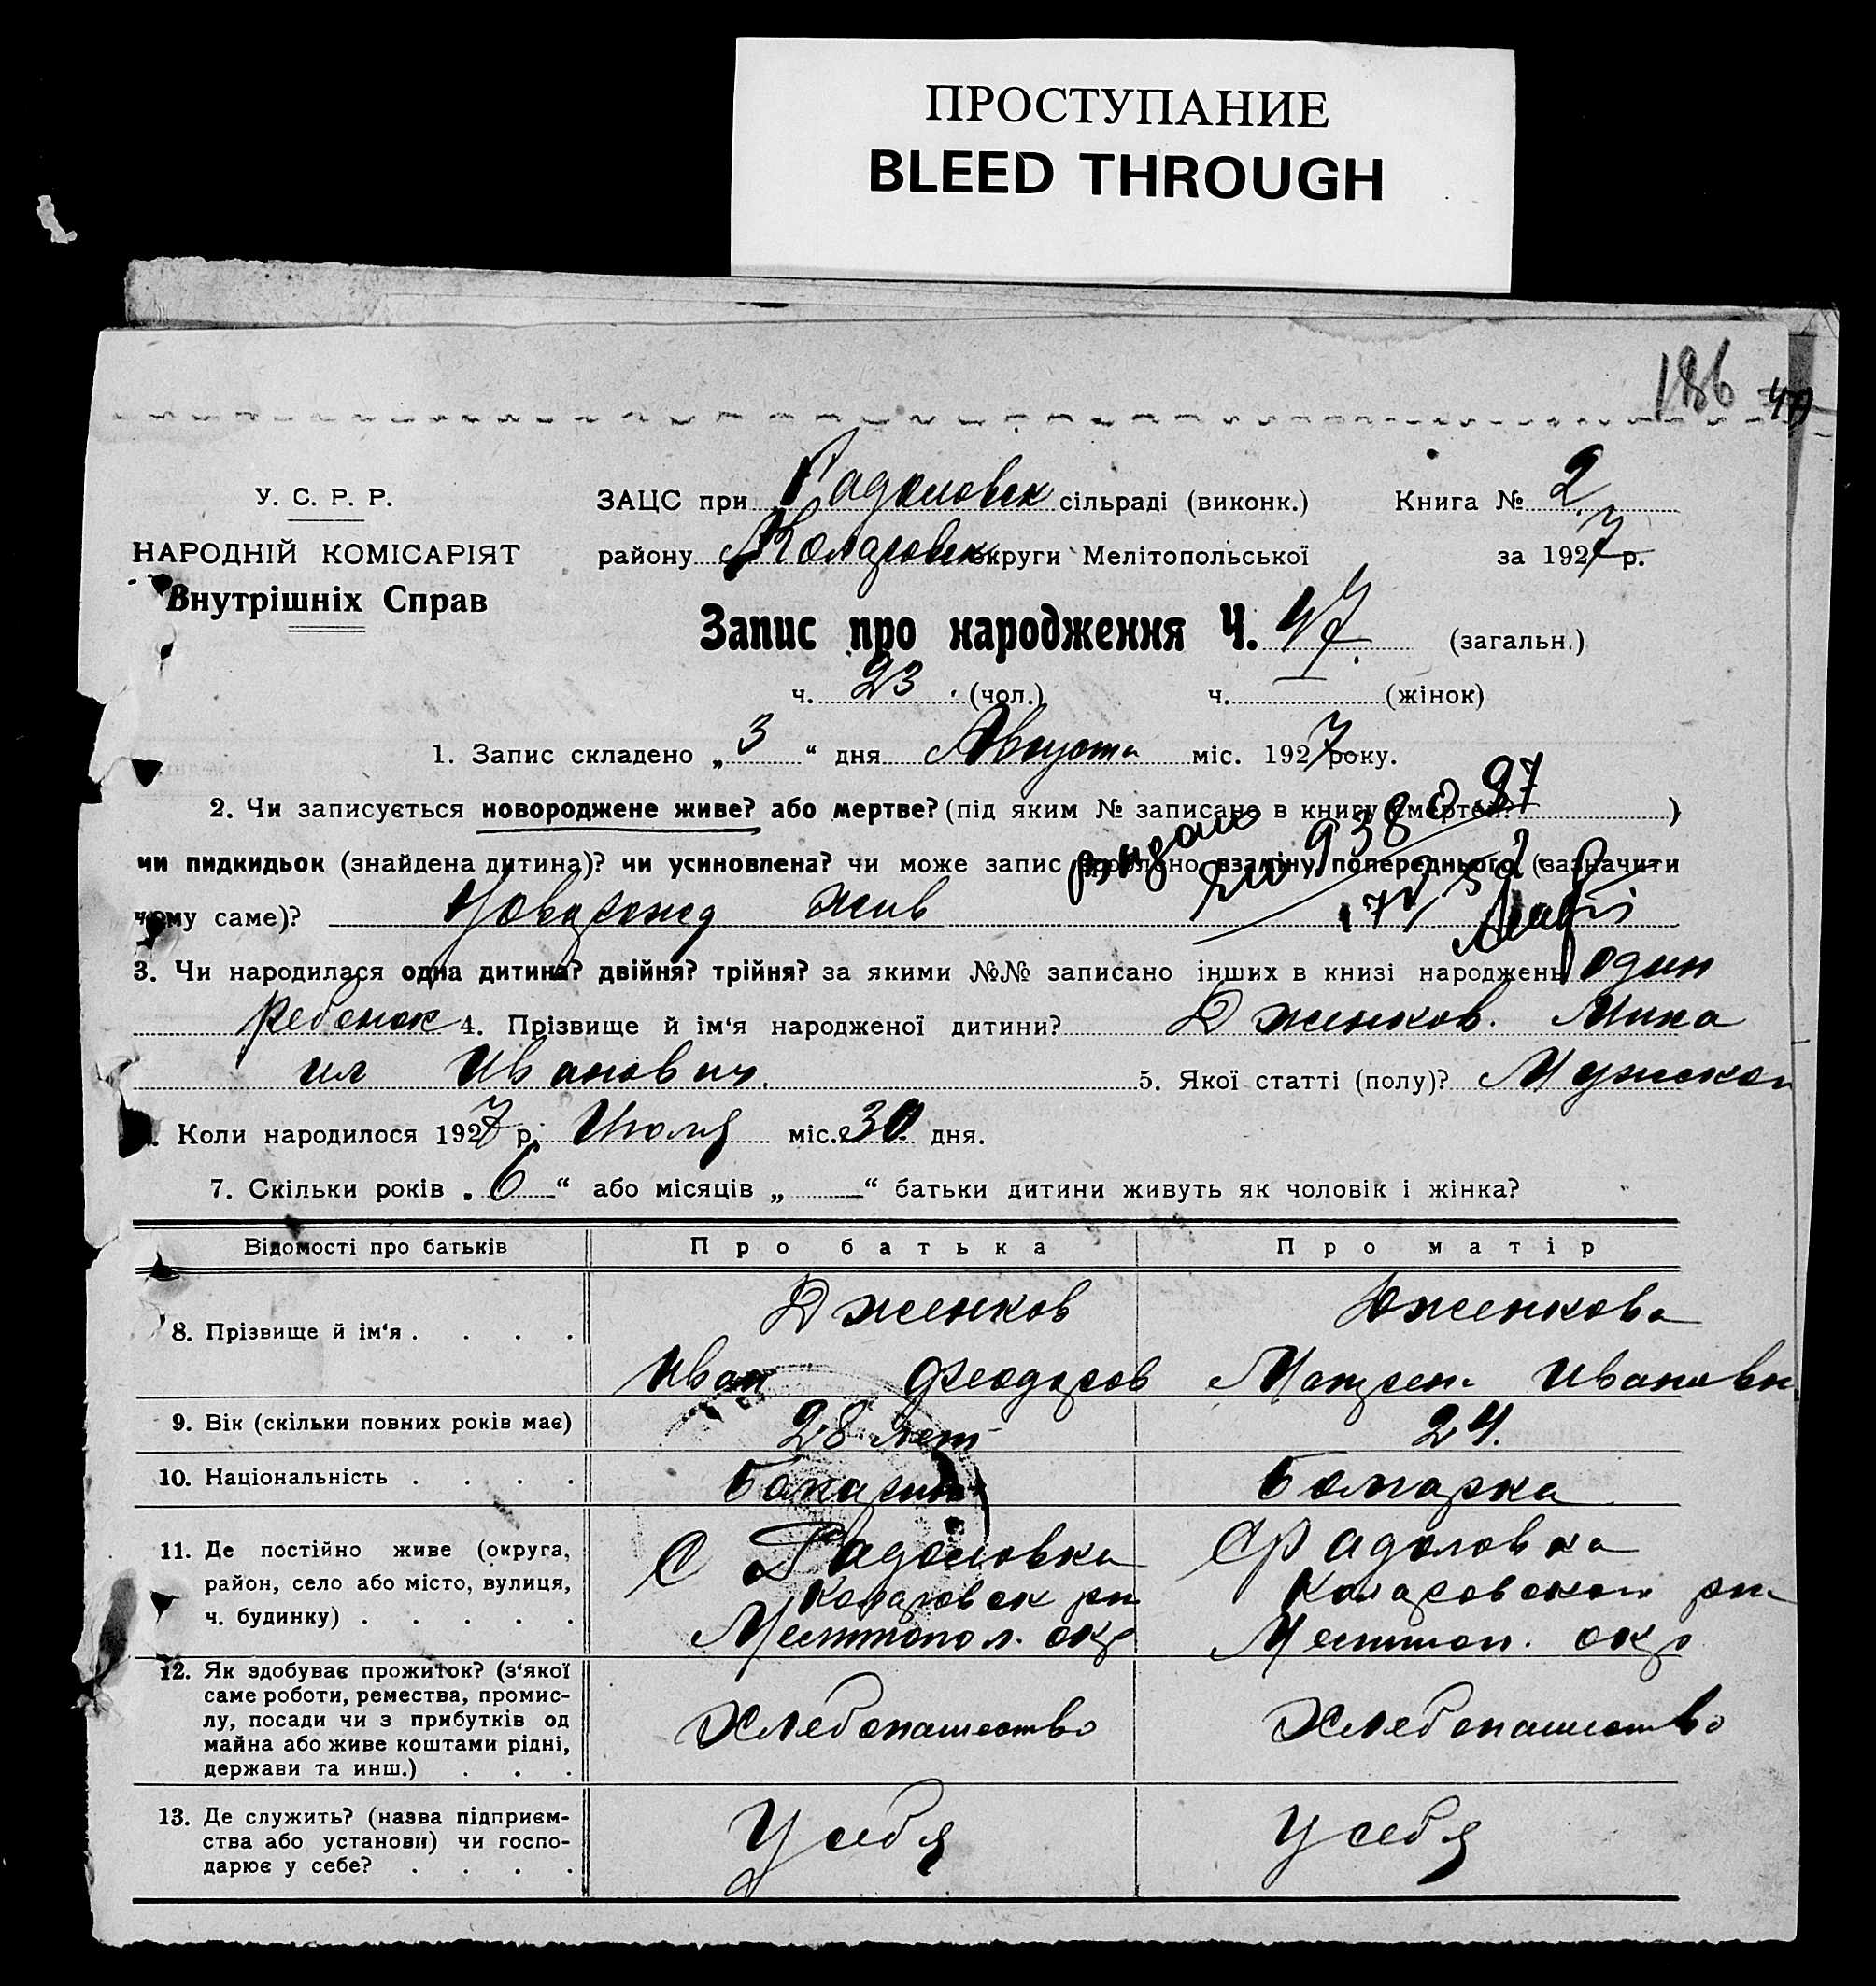 ПРОСТУПАНИЕ
BLEED THROUGH
186 47
У. С. Р. Р.
НАРОДНІЙ КОМІСАРІЯТ
Внутрішніх Справ
ЗАЦС при Радоловск сільраді (виконк.) Книга № 2
району Коларовск округи Мелітопольської за 1927 р.
Запис про народження Ч. 47. (загальн.)
ч. 23 (чол.) ч. (жінок)
1. Запис складено „ 3 “ дня Августа міс. 1927 року.
2. Чи записується новороджене живе? або мертве? (під яким № записано в книгу смертей? )
чи пидкидьок (знайдена дитина)? чи усиновлена? чи може запис зроблено взаміну попереднього? (зазначити
чому саме)? Новорожд жив
3. Чи народилася одна дитина? двійня? трійня? за якими №№ записано інших в книзі народжень один
ребенок 4. Прізвище й ім‘я народженої дитини? Дженков. Миха
ил Иванович. 5. Якої статті (полу)? Мужской
Коли народилося 1927 р. Июля міс. 30 дня.
7. Скільки років „ 6 “ або місяців „ “ батьки дитини живуть як чоловік і жінка?
Відомості про батьків Про батька Про матір
8. Прізвище й ім‘я . . . . Дженков Дженкова
Иван Феодоров Матрен Ивановн
9. Вік (скільки повних років має) 28 лет 24.
10. Національність . . . . Болгарин Болгарка
11. Де постійно живе (округа, район, село або місто, вулиця, ч. будинку) . . . . .
С Радоловка С Радоловка
Коларовск рн Коларовском рн
Мелитопол. окр Мелитоп. окр
12. Як здобуває прожиток? (з‘якої
саме роботи, ремества, промис-
лу, посади чи з прибутків од
майна або живе коштами рідні,
держави та инш.) . . .
Хлебопашество Хлебопашество
13. Де служить? (назва підприєм-
ства або установи) чи госпо-
дарює у себе? . . . .
У себя У себя